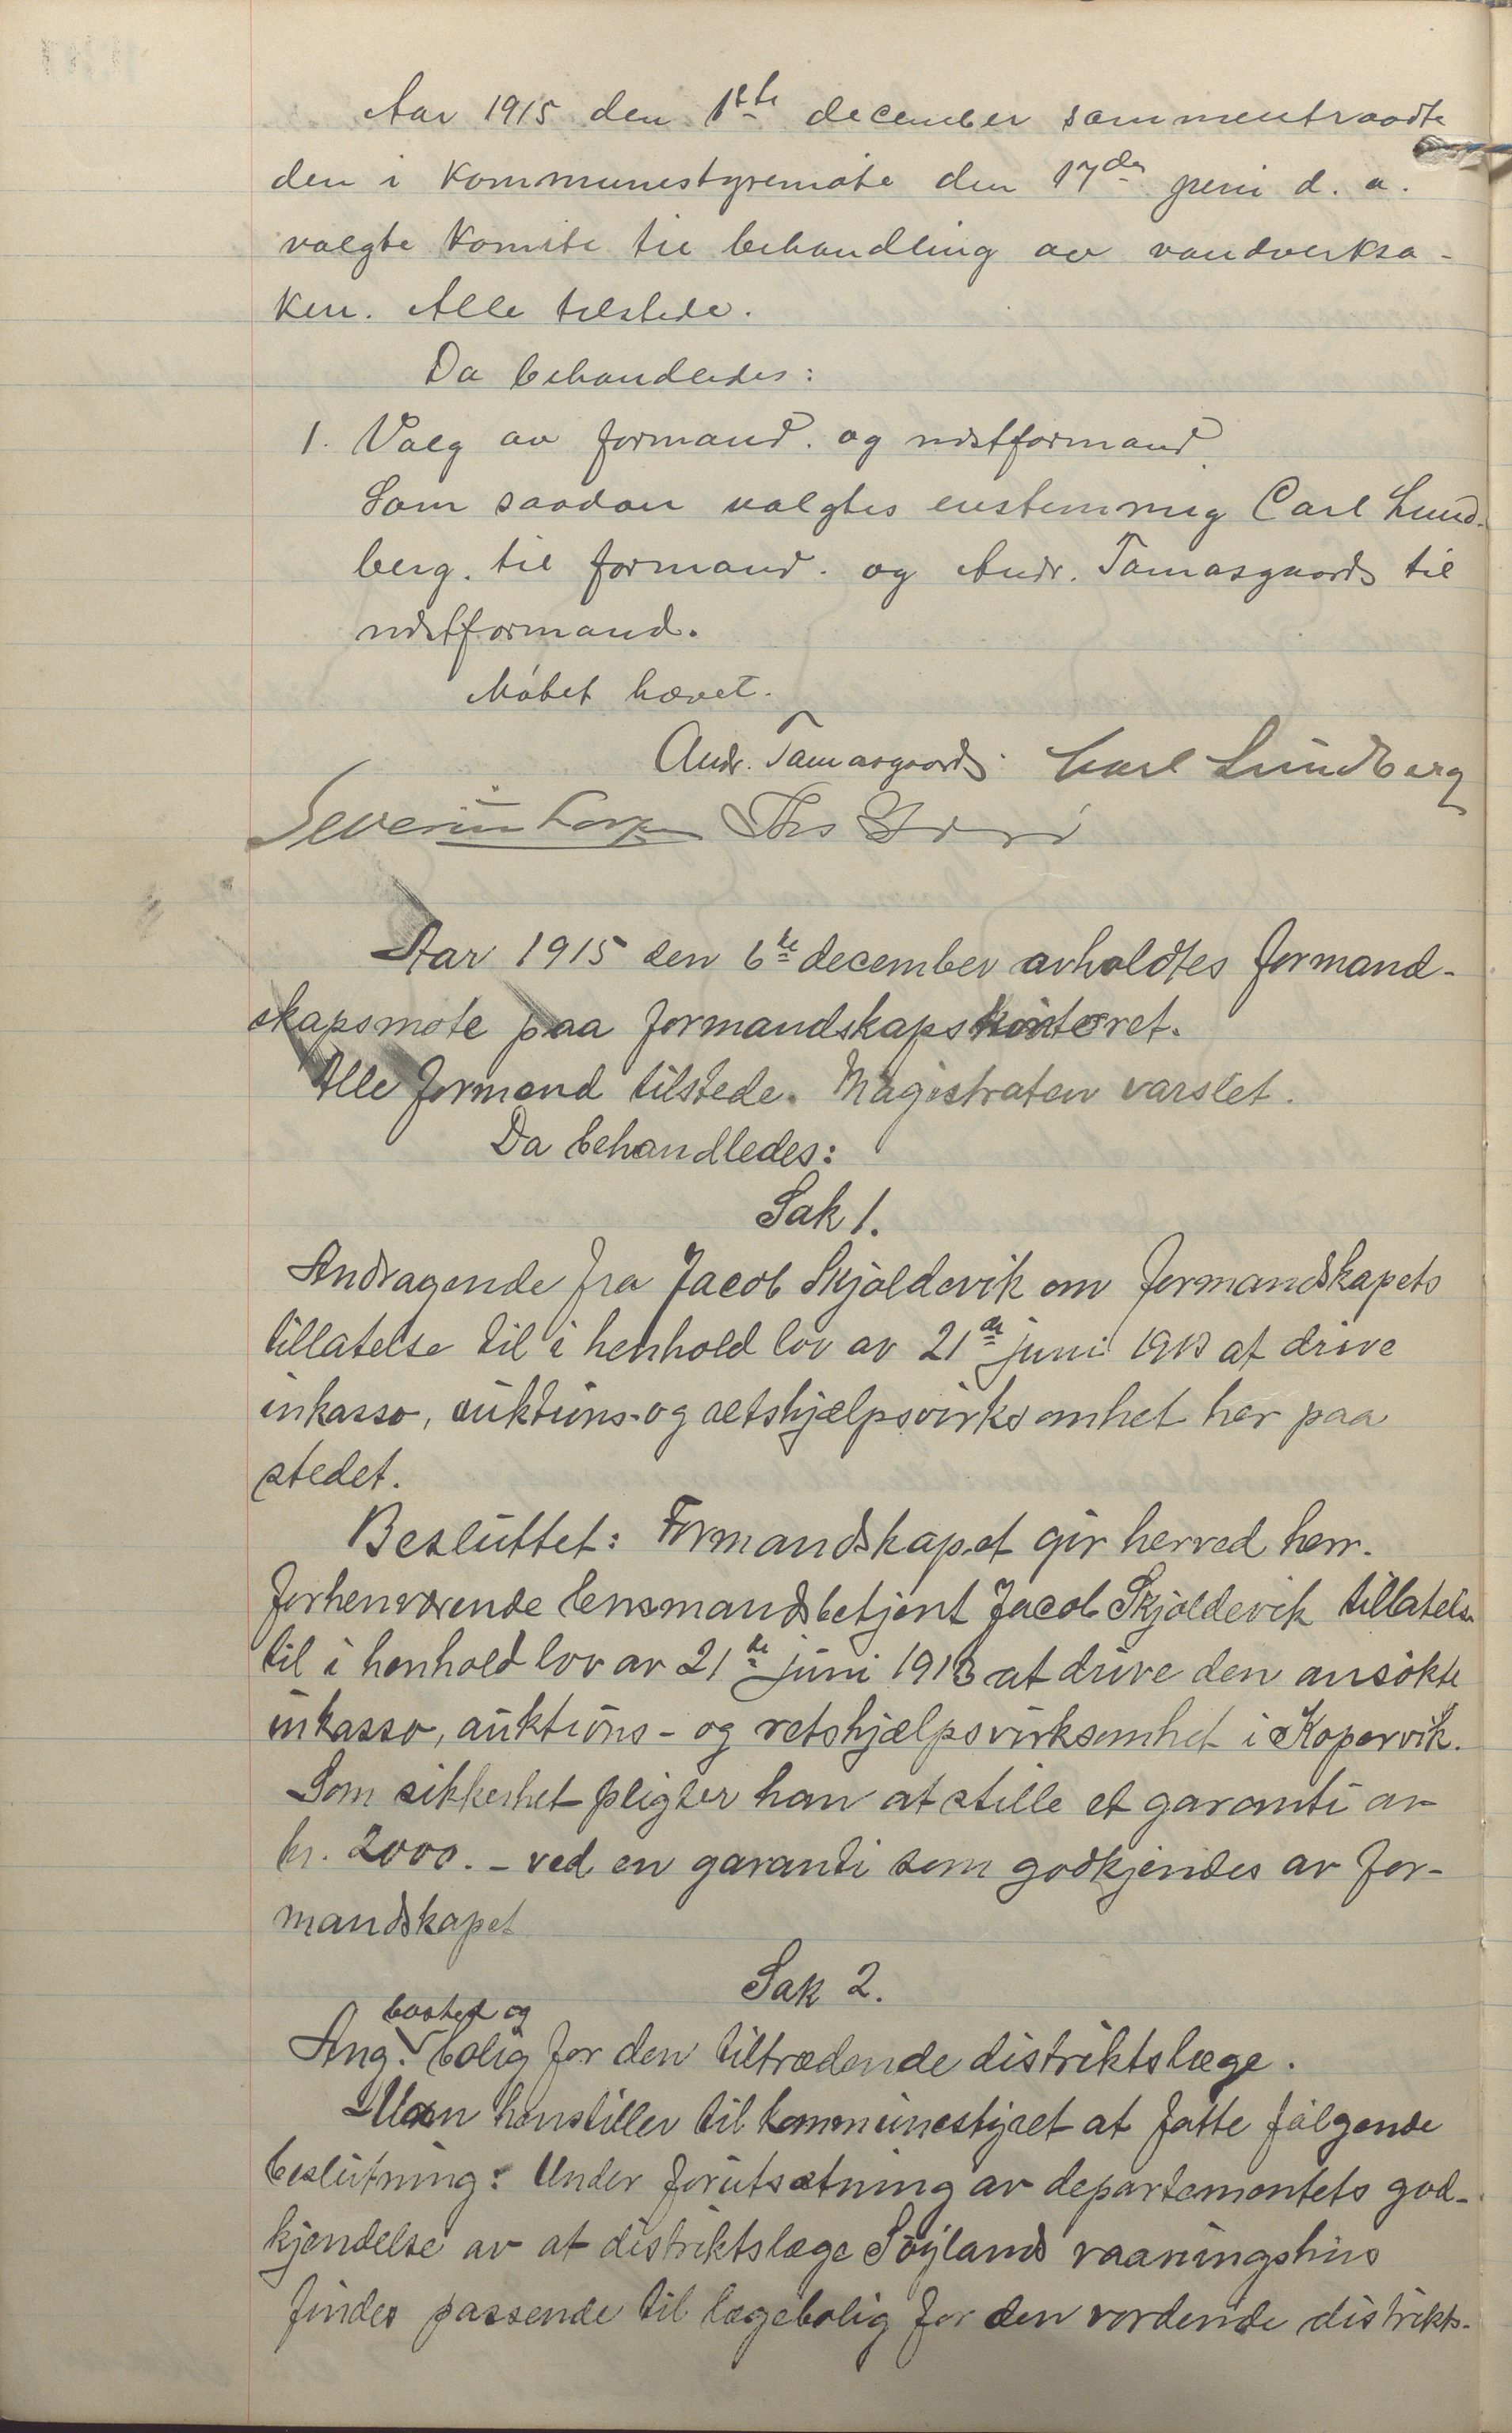 Aar 1915 den 1ste december sammentraadte
den i kommunestyremøte den 17de juni d. a.
valgte komite til behandling av vandverksa-
ken. Alle tilstede.
Da behandledes:
1. Valg av formand. og næstformand.
Som saadan valgtes enstemmig Carl Lund-
berg. til formand. og Andr. Tamasgaards til
næstformand.
Møtet hævet.
Andr. Tamasgaards. Carl Lundberg
Severin
Aar 1915 den 6te december avholdtes formand-
skapsmøte paa formandskapskontoret.
Alle formænd tilstede. Magistraten varslet.
Da behandledes:
Sak 1.
Andragende fra Jacob Skjoldevik om formandskapets
tillatelse til i henhold lov av 21de juni 1913 at drive
inkasso, auktions- og retshjælpsvirksomhet her paa
stedet.
Besluttet: Formandskapet gir herved herr.
forhenværende lensmandsbetjent Jacob Skjoldevik tillatelse
til i henhold lov av 21de juni 1913 at drive den ansøkte
inkasso, auktions- og retshjælpsvirksomhet i Kopervik.
Som sikkerhet pligter han at stille et garanti av
kr. 2000.- ved en garanti som godkjendes av for-
mandskapet
Sak 2.
bosted og
Ang. bolig for den tiltrædende distriktslæge.
Man henstiller til kommunestyret at fatte følgende
beslutning: Under forutsætning av departementets god-
kjendelse av at distriktslæge Søylands vaaningshus
findes passende til lægebolig for den vordende distrikts-